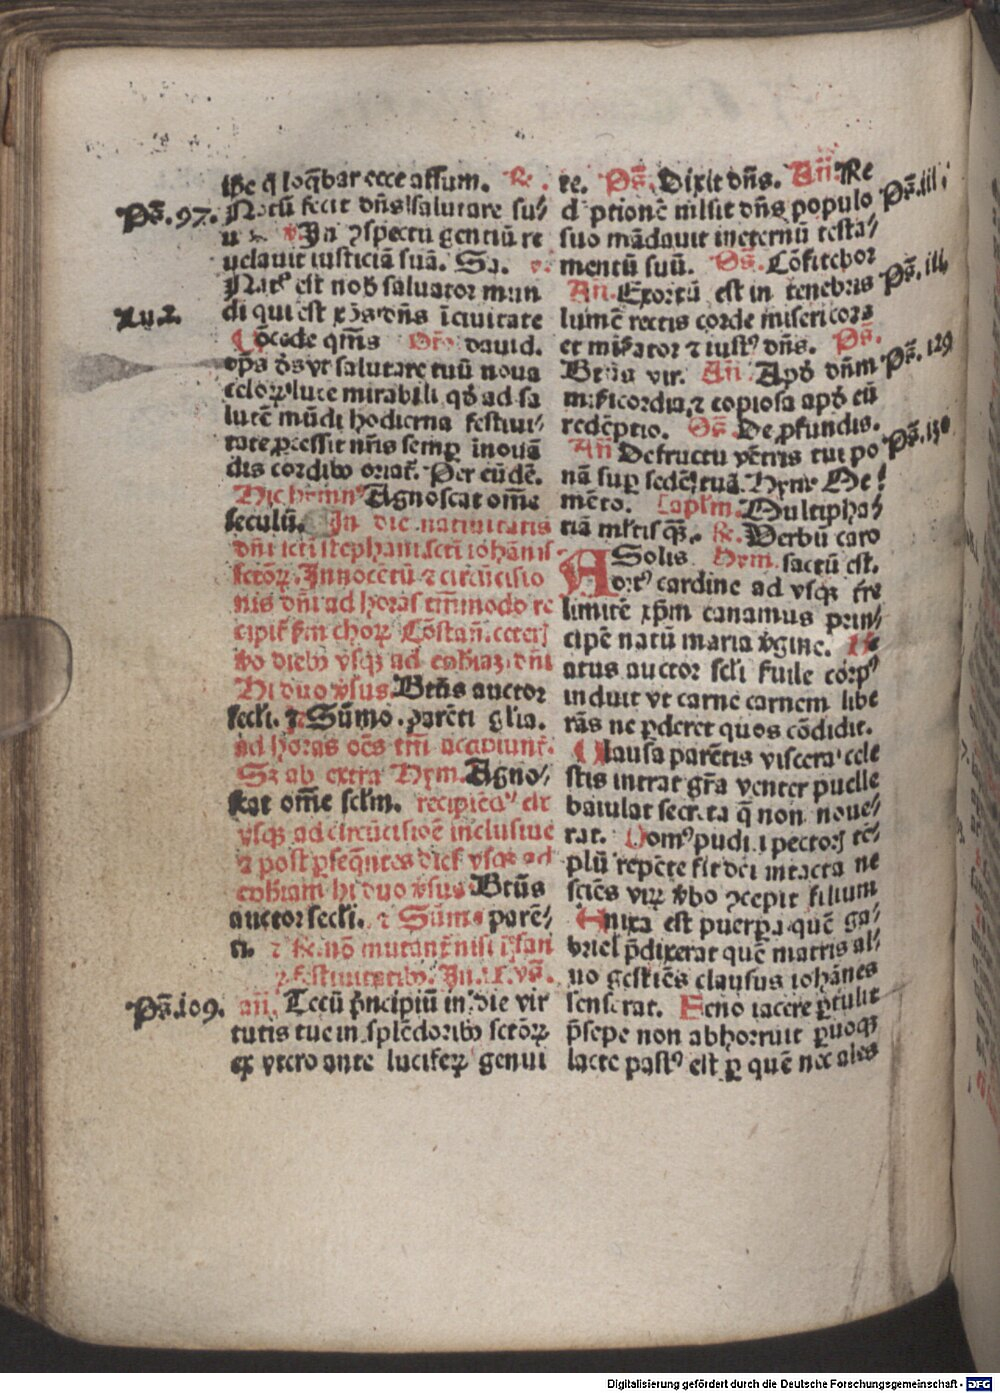 ipse q̄ loq̄bar ecce assum. R̃.
Ps̄. 97.
Notū fecit dñs salutare su/
u v In ↄspectu gentiū re
uelauit iusticiā suā. Sa. v.
Natꝰ est nob̄ saluator mun
Lu 2.
di qui est xp̄s dñs ī ciuitate
dauid. Orō Cōcede qm̄s
op̄s ds̄ vt salutare tuū noua
celoꝝ luce mirabili qd̄ ad sa
lutē mūdi hodierna festiui/
tate ꝓcessit nr̄is semꝑ inouā
dis cordibꝰ oriat᷑. Per eūdē.
Hic hymnꝰ Agnoscat om̄e
seculū. In die natiuitatis
dñi scti stephani. scti iohānis
sctōꝝ. Innocētū ⁊ circūcisio
nis dñi ad horas tm̄modo re
cipit᷑ ẜm choꝝ Cōstan̄. ceterꝭ
ꝟo diebꝰ vsqꝫ ad ephiaꝫ. dñi
Hi duo ꝟsus. Btūs auctor
secli. ⁊ Sūmo. parēti gl̄ia.
ad horas oēs tm̄ accipiunt᷑.
Sꝫ ab extra Hym. Agno/
scat om̄e sclm̄. recipiēdꝰ est
vsqꝫ ad circūcisioē inclusiue
⁊ post ꝑseq̄ntes dies vsqꝫ ad
ephiam hi duo ꝟsus Btūs
auctor secli. ⁊ Sūmo parē/
ti. ⁊ R̃. nō mutant᷑ nisi ī san
⁊ festiuitatibꝰ. In. I. vs̄.
Ps̄. 109.
an̄. Tecū pncipiū in die vir
tutis tue in splēdoribꝰ sctōꝝ
ex vtero ante luciferꝝ genui
te. Ps̄. Dixit dñs. An̄. Re
dēptionē misit dñs populo
Ps̄. iii
suo mādauit in eternū testa/
mentū suū. Ps̄. Cōfitebor
An̄. Exortū est in tenebris
Ps̄. iii
lumē rectis corde misericors
et misator ⁊ iustꝰ dñs. Ps̄.
Btūs vir. An̄. Apd̄ dñm
Ps̄. 129
misicordia, ⁊ copiosa apd̄ eū
redēptio. Ps̄. De ꝓfundis.
An̄ De fructu vētris tui po
Ps̄. 130
nā suꝑ sedē tuā. Hym Me/
mēto. Caplm. Multipha/
riā mltisqꝫ. R̃. Verbū caro
factū est. Hym. A Solis
ortꝰ cardine ad vsqꝫ tr̄e
limitē xp̄m canamus prin/
cipē natū maria ꝟgine. Be
atus auctor scl̄i suile corpꝰ
induit vt carne carnem libe
rās ne ꝑderet quos cōdidit.
Clausa parētis viscera cele
stis intrat gr̄a venter puelle
baiulat secreta q̄ non noue/
rat. Domꝰ pudici pectorꝭ tē/
plū repēte fit dei intacta ne
sciēs virꝝ ꝟbo ↄcepit filium
Enixa est puerꝑa quē ga/
briel p̄dixerat quē matris al/
uo gestiēs clausus iohānes
senserat. Feno iacere ꝑtulit
p̄sepe non abhorruit ꝑuoqꝫ
lacte pastꝰ est ꝑ quē nec ales
Digitalisierung gefördert durch die Deutsche Forschungsgemeinschaft - DFG